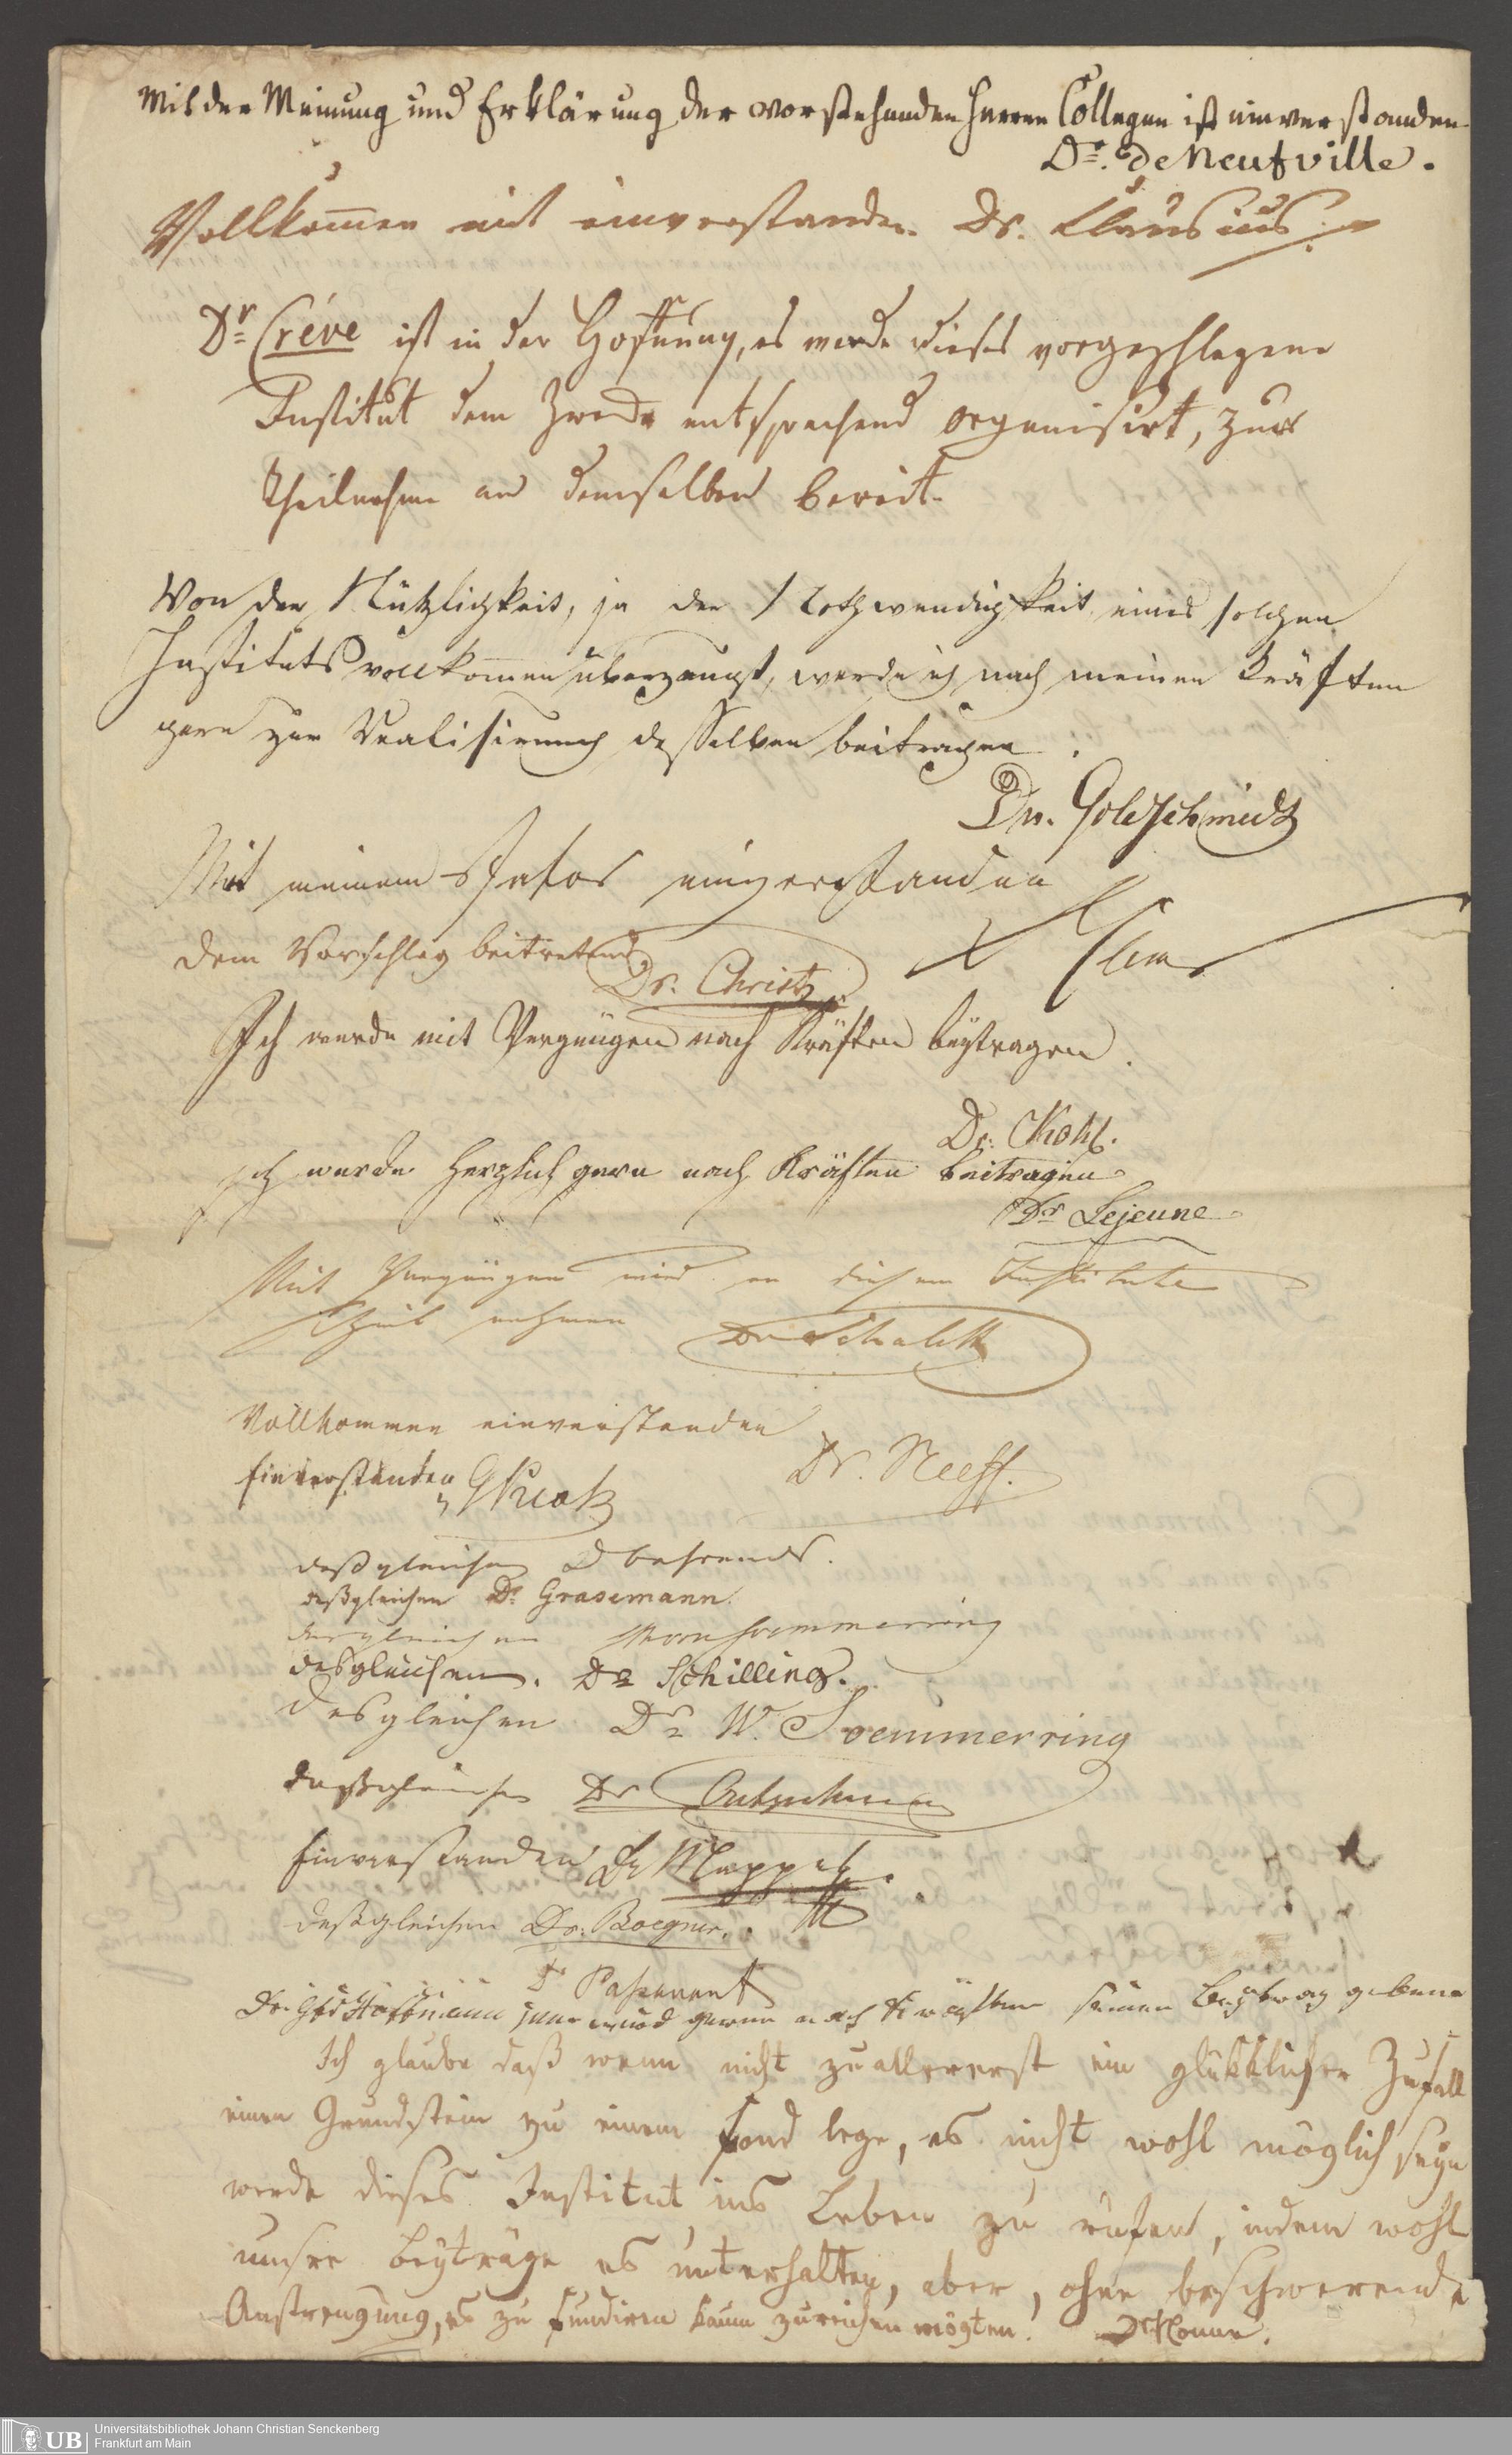 Mit der Meinung und Erklärung der vorstehenden Herren Collegen ist einverstanden
Dr. de Neufville.
Vollkom̅en mit einverstanden Dr. Clausius.
Dr Créve ist in der Hoffnung, es werde dieses vorgeschlagene
Institut dem Zwecke entsprechend organisirt, zur
Theilnahme an demselben bereit.
Von der Nützlichkeit, ja der Nothwendigkeit eines solchen
Instituts vollkom̅en überzeugt, werde ich nach meinen Kräften
gern zur Realisirung desselben beitragen.
Dr. Goldschmidt
Mit meinem einverstanden
Dem Vorschlag beitretend Dr. Christ
Ich werde mit Vergnügen nach Kräften beÿtragen.
Dr. Kohl.
Ich werde herzlich gern nach Kräften beitragen
Dr Lejeune
Mit Vergnügen wird an diesem Institute
Theil nehmen Dr Schalck
Vollkommen einverstanden
Dr. Neeff.
Einverstanden
deßgleichen Behrends.
deßgleichen Dr. Grasemann.
desgleichen Soemmerring
desgleichen. Dr Schilling.
desgleichen Dr W. Soemmerring
deßgleichen Dr
Einverstanden Dr Mappes.
deßgleichen Dr. Boegner.
Dr Passavant
Dr. Hoffmann jun. wird gerne nach Kräften seinen Beytrag geben
Ich glaube daß wenn nicht zuallererst ein glükklicher Zufall
einen Grundstein zu einem Fond lege, es nicht wohl möglich seyn
werde dieses Institut ins Leben zu rufen, indem wohl
unsre Beyträge es unterhalten, aber, ohne beschwerende
Anstrengung, es zu fundiren kaum zureichen mögten. Dr Nonne.
UB Universitätsbibliothek Johann Christian Senckenberg
Frankfurt am Main